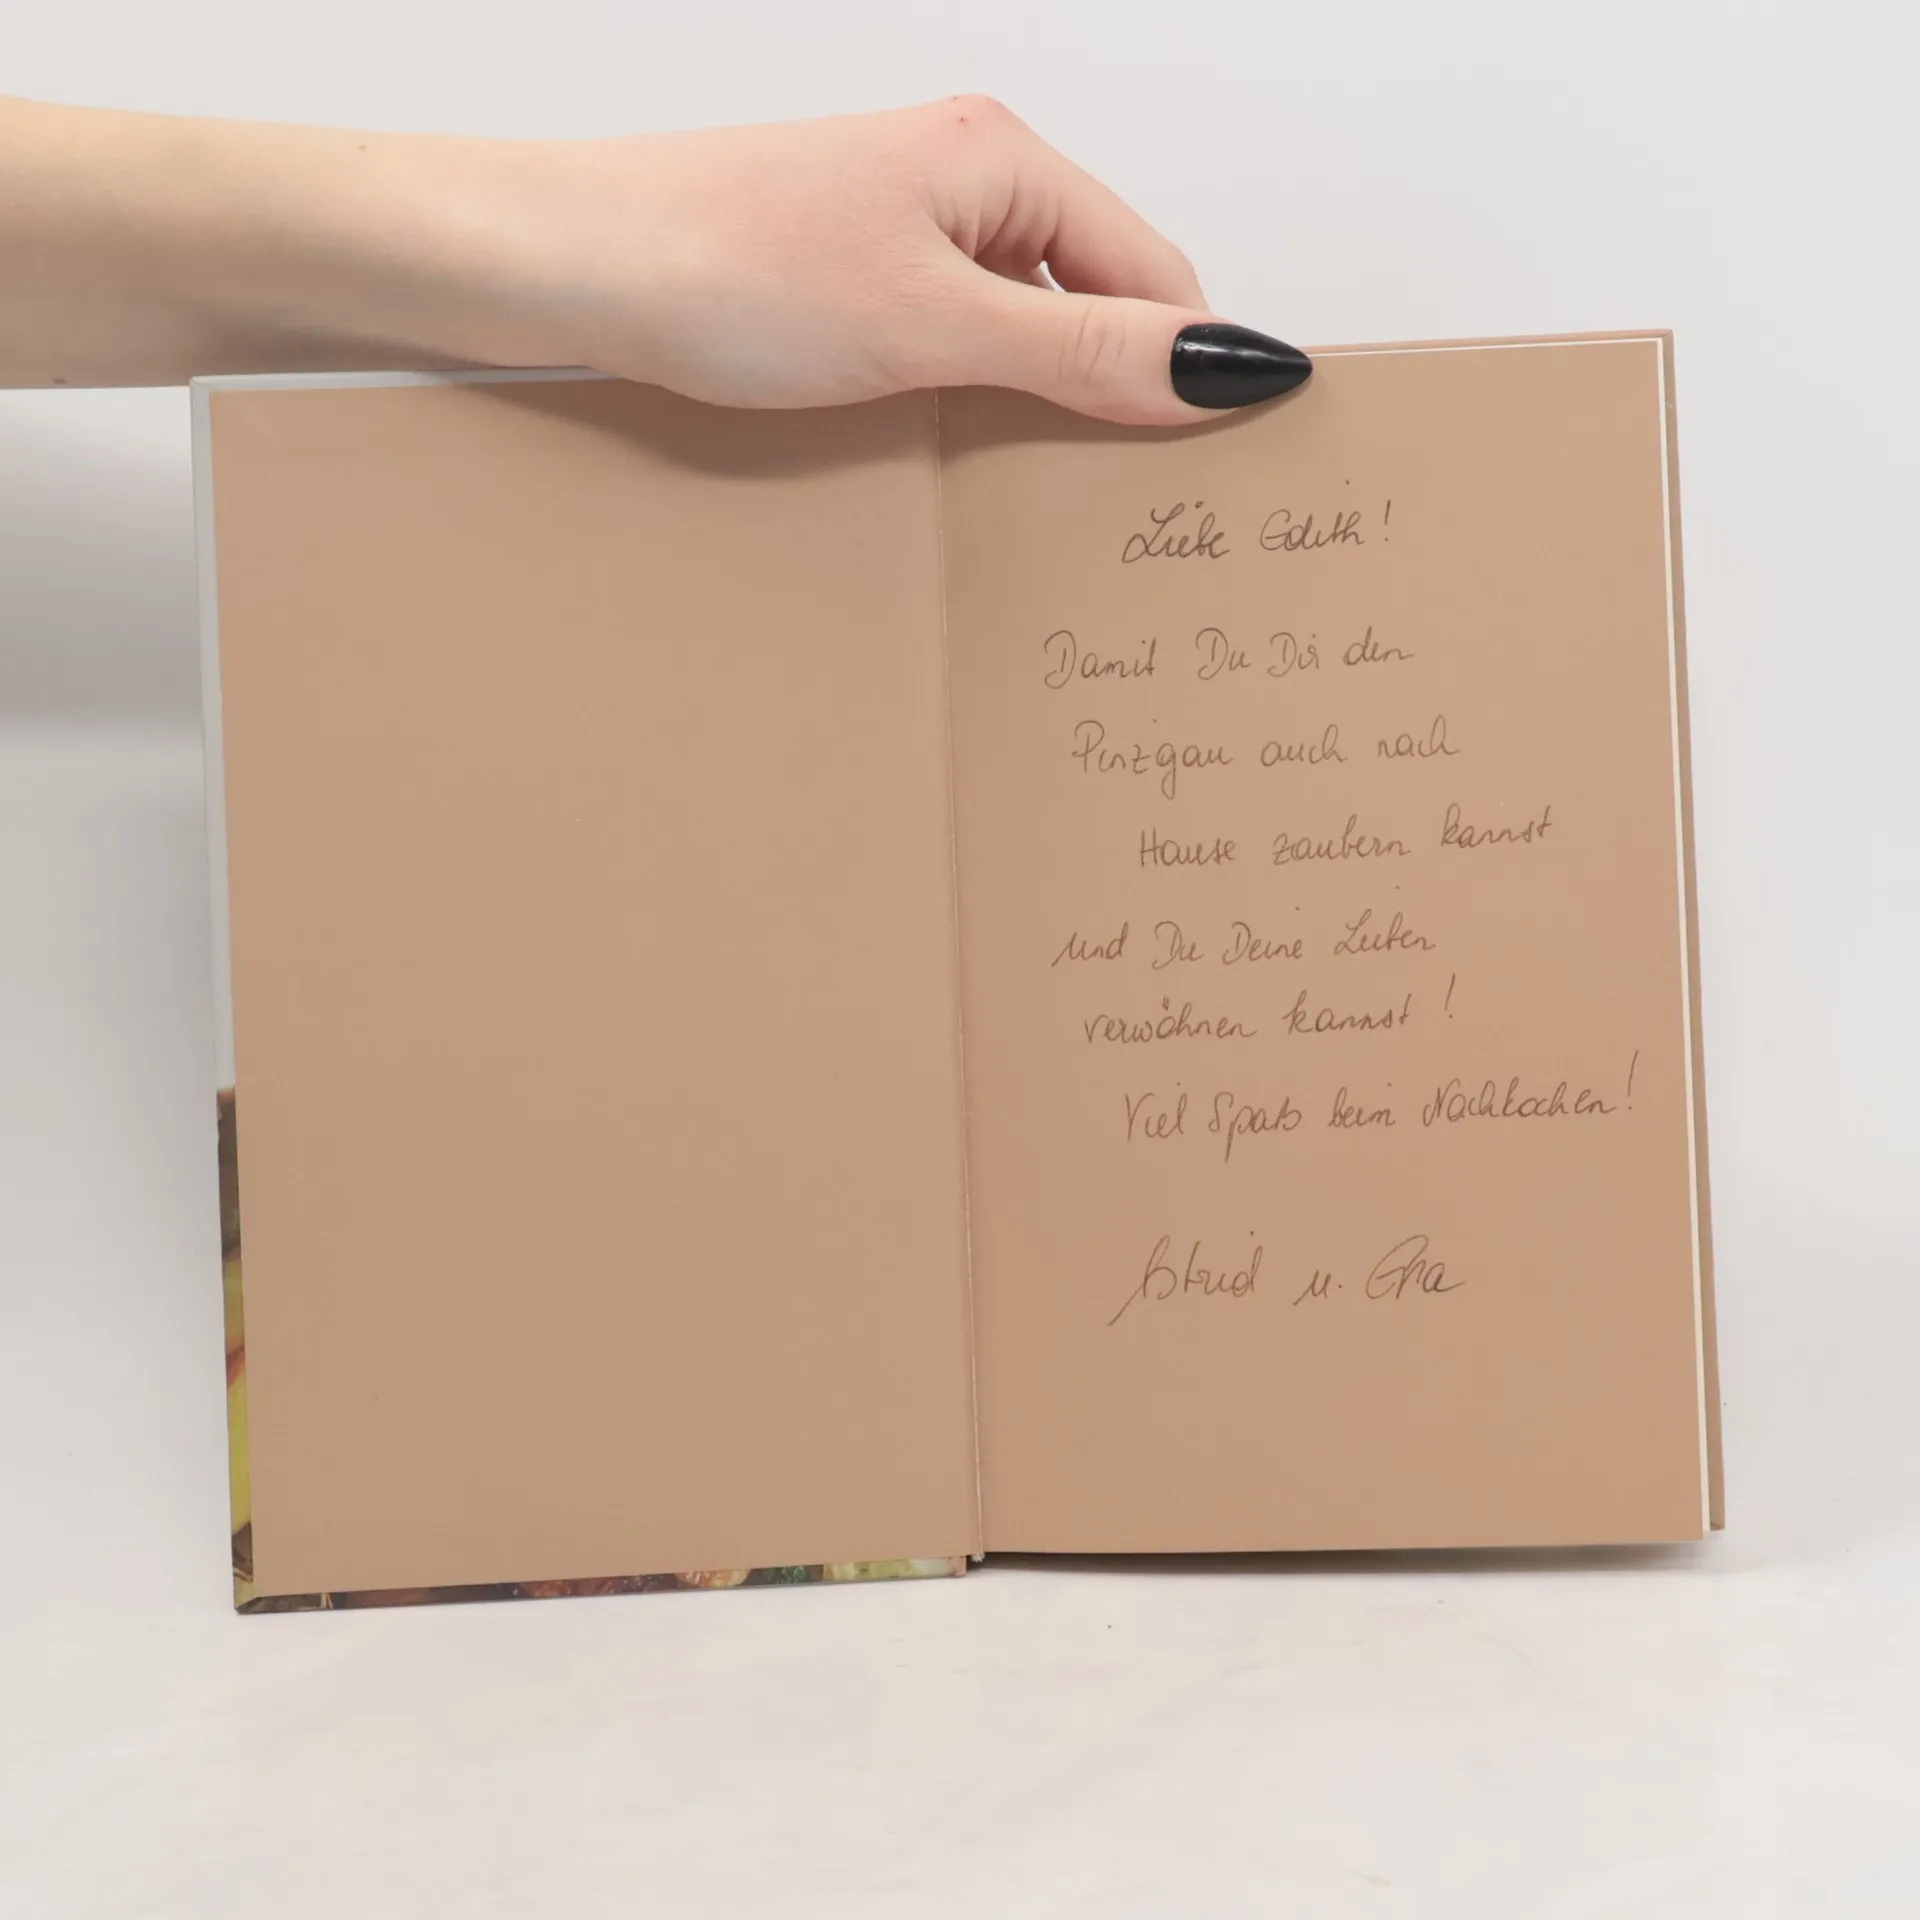 Liebe Edith!
Damit Du Dir den
Pinzgau auch nach
Hause zaubern kannst
und Du Deine Lieben
verwöhnen kannst!
Viel Spaß beim Nachkochen!
Astrid u.